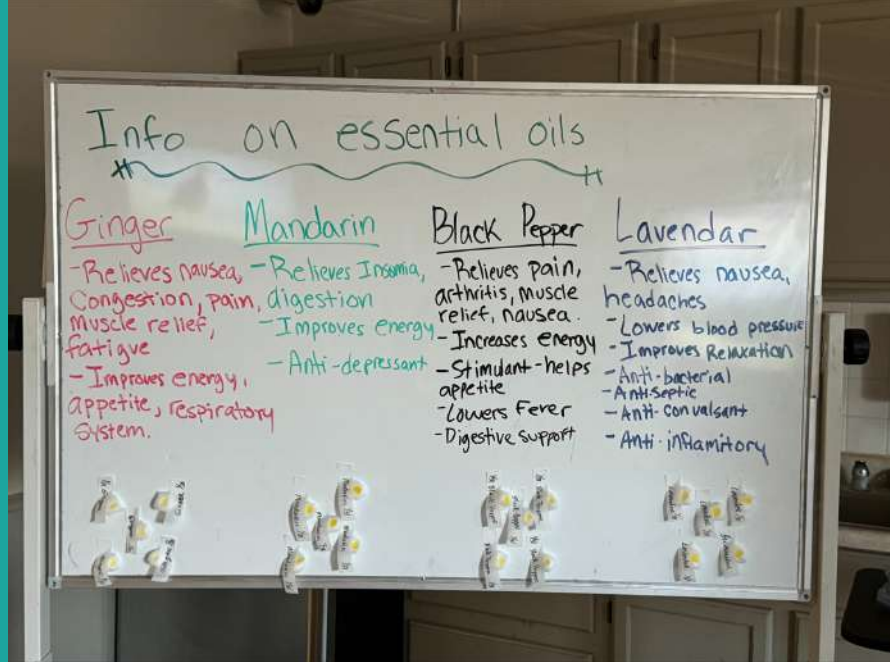 Info on essential oils
Ginger
-Relieves nausea,
Congestion, pain,
Muscle relief,
fatigue
-Improves energy,
appetite, respiratory
system.
Mandarin
-Relieves Insomia,
digestion
-Improves energy
-Anti-depressant
Black Pepper
-Relieves pain,
arthritis, muscle
relief, nausea.
-Increases energy
-Stimulant-helps
appetite
-Lowers Fever
-Digestive support
Lavendar
-Relieves nausea,
headaches
-Lowers blood pressure
-Improves Relaxation
-Anti-bacterial
-Antiseptic
-Anti-convalsant
-Anti-inflamitory